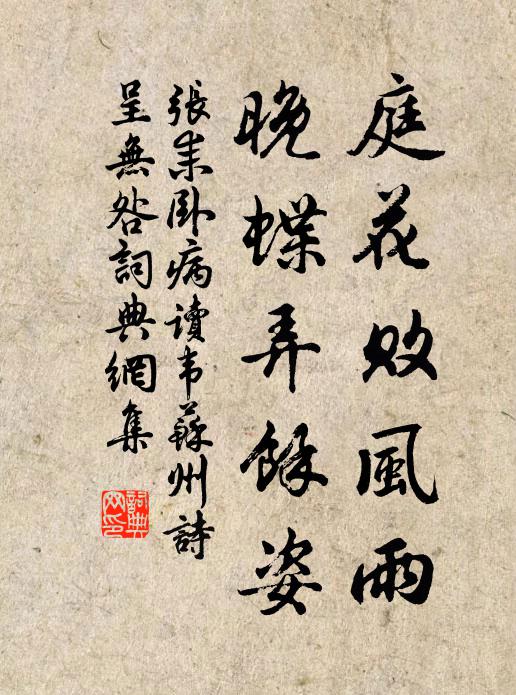 庭花败風雨
晚蝶弄餘姿
張耒卧病讀韦蘇州詩
呈無咎詞典網集
詞典
网印